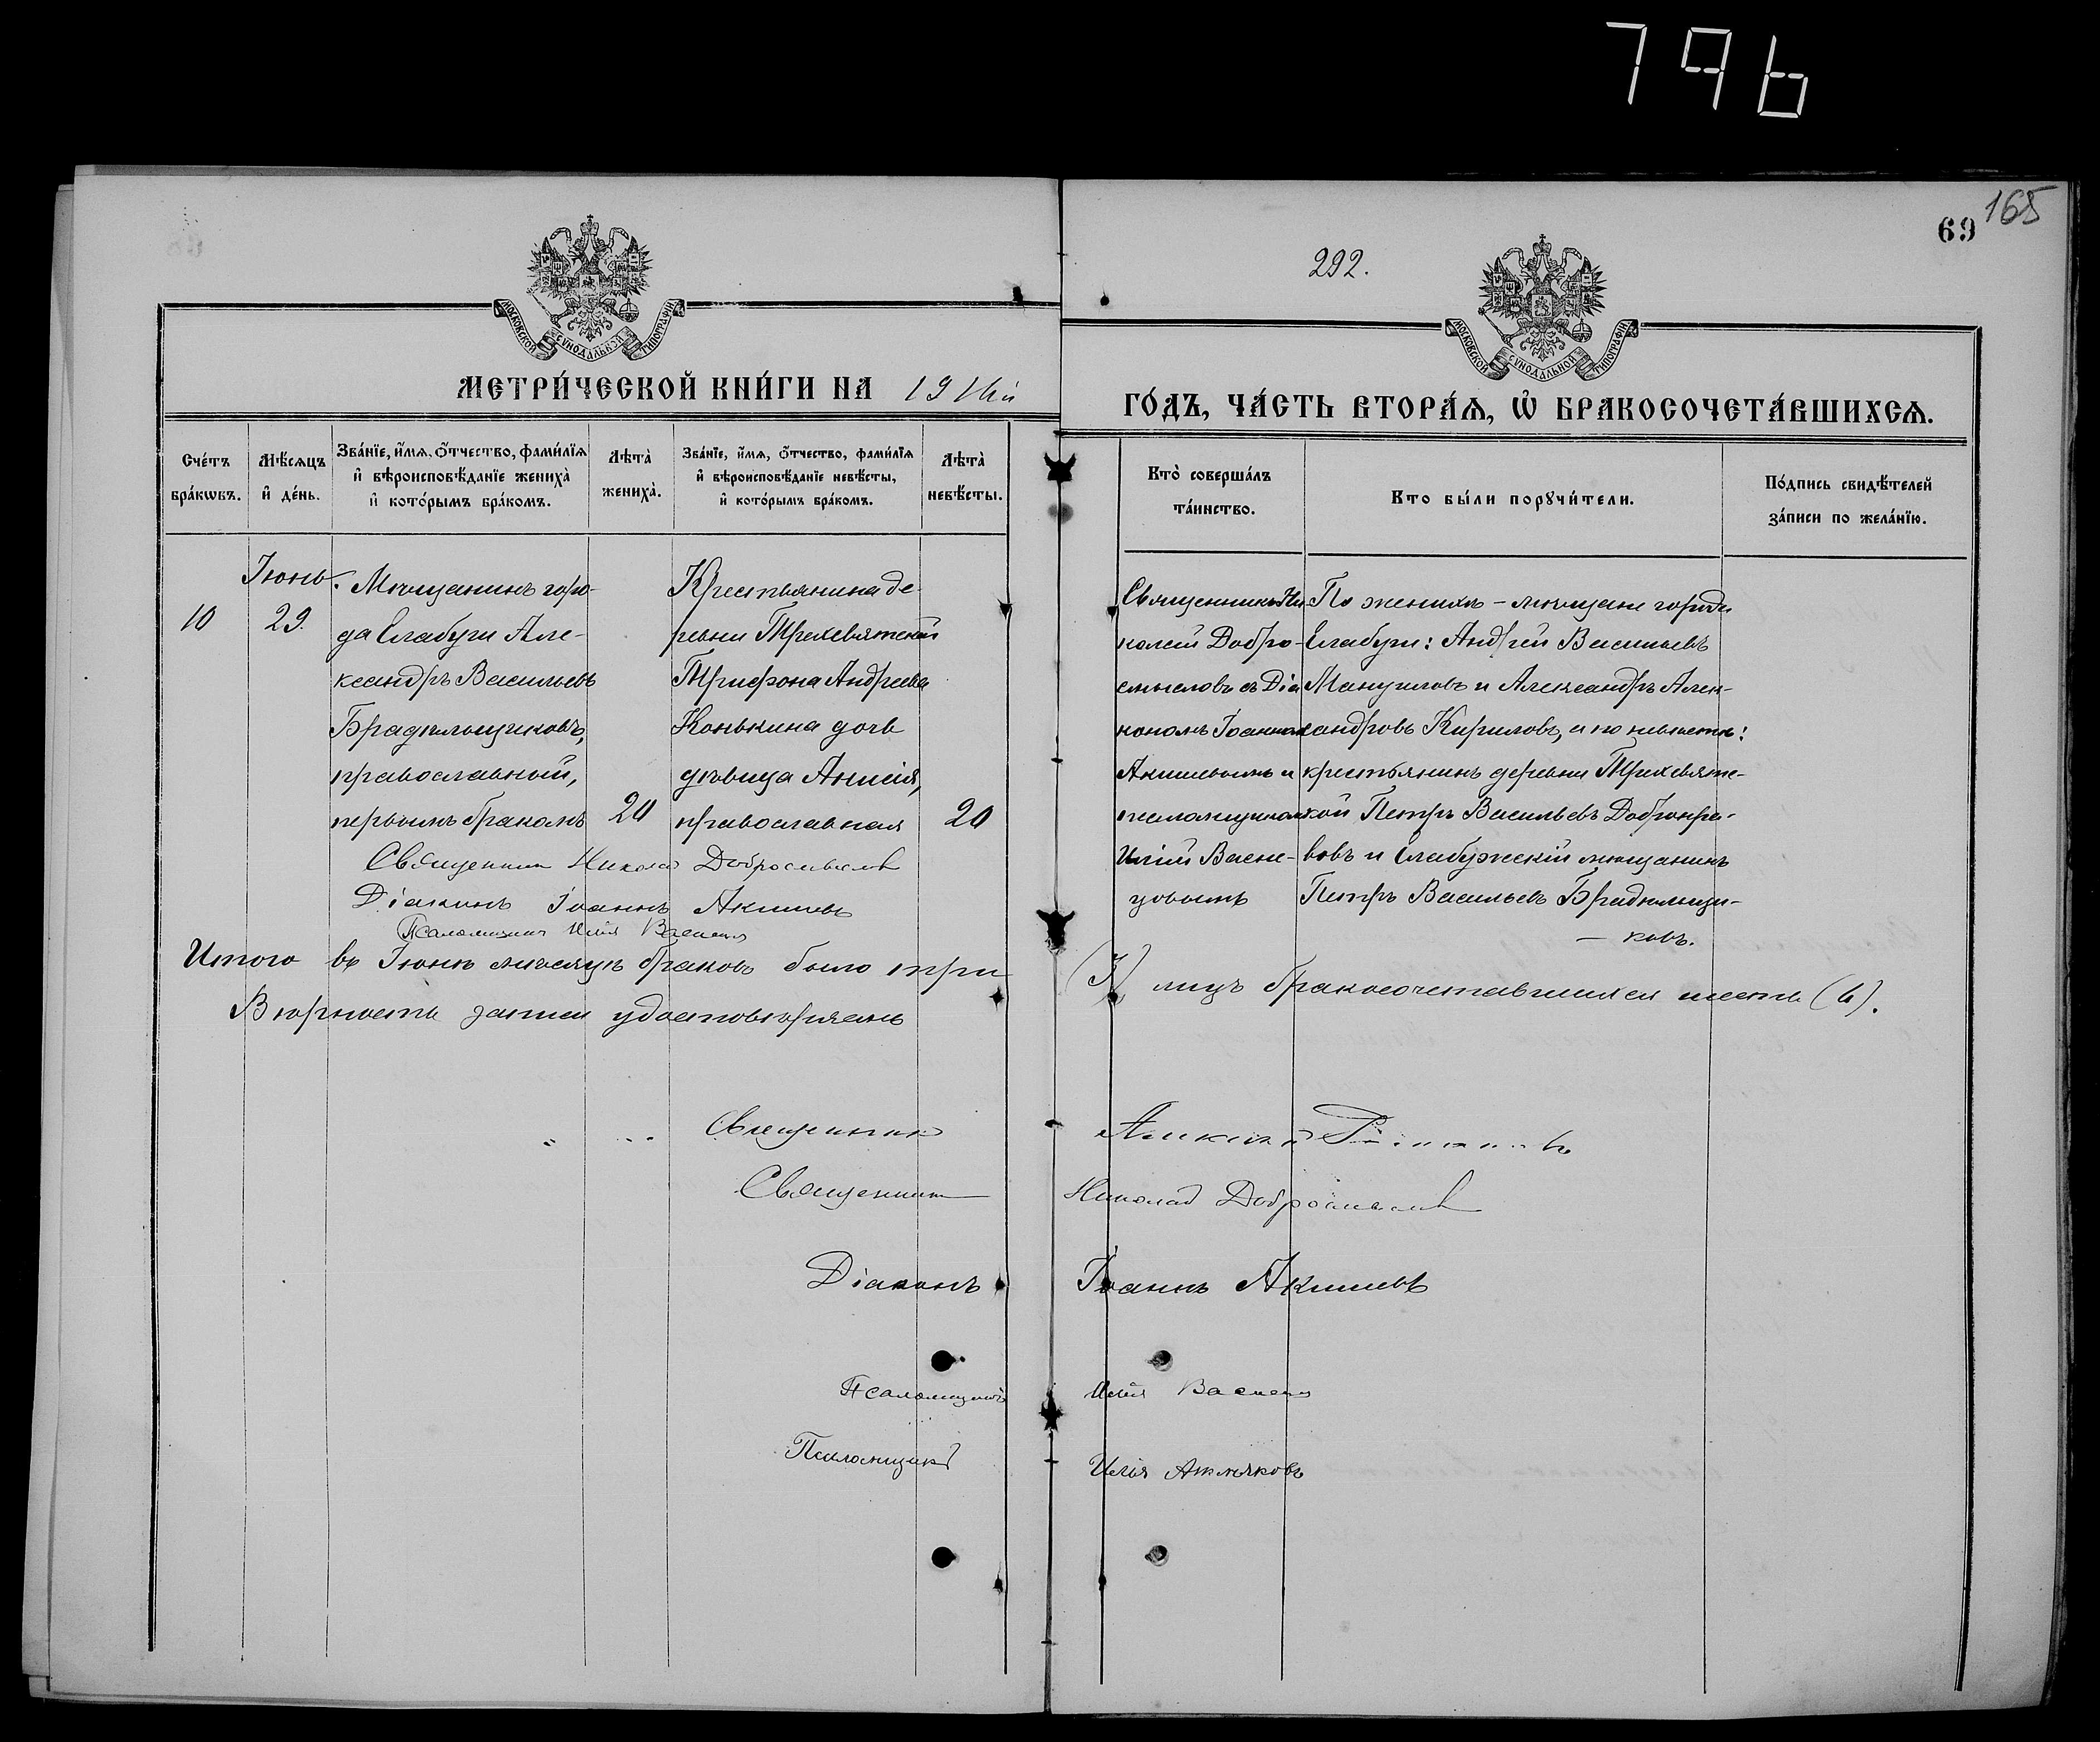 796
165
69
292.
МОСКОВСКОЙ СѴНОДАЛЬНОЙ ТИПОГРАФІИ
МОСКОВСКОЙ СѴНОДАЛЬНОЙ ТИПОГРАФІИ
МЕТРИ́ЧЕСКОЙ КНИ́ГИ НА 19
ГО́ДЪ, ЧА́СТЬ ВТОРА́Ѧ, Ѽ БРАКОСОЧЕТА́ВШИХСѦ.
Сче́тъ бра́кѡвъ.
Мѣ́сѧцъ и҆ де́нь.
Зва́нїе, и҆́мѧ, ѻ҆́тчество, фами́лїѧ и҆ вѣроисповѣ́данїе жениха̀ и҆ кото́рымъ бра́комъ.
Лѣта̀ жениха̀.
Зва́нїе, и҆́мѧ, ѻ҆́тчество, фами́лїѧ и҆ вѣроисповѣ́данїе невѣ́сты, и҆ кото́рымъ бра́комъ.
Лѣта̀ невѣ́сты.
Кто̀ соверша́лъ та́инство.
Кто бы́ли порꙋчи́тели.
По́дпись свидѣ́телей за́писи по жела́нїю.
10
Іюнь.
29.
Мѣщанинъ горо-
да Елабуги Але-
ксандръ Васильевъ
Брадильщиковъ,
православный,
первымъ бракомъ
20
Крестьянина де-
ревни Трехсвятской
Трифона Андреева
Конькина дочь
дѣвица Анисія,
православная
20
Священникъ Ни-
колай Добро-
смысловъ съ Діа-
кономъ Іоанномъ
Акишевымъ и
псаломщикомъ
Иліей Васне-
цовымъ
По женихѣ – мѣщане города
Елабуги: Андрей Васильевъ
Мануиловъ и Александръ Алек-
сандровъ Кириловъ, и по невѣстѣ:
крестьянинъ деревни Трехсвятс-
кой Петръ Васильевъ Добронра-
вовъ и Елабужскій мѣщанинъ
Петръ Васильевъ Брадильщи-
– ковъ.
Священникъ Николай Добросмысловъ
Діаконъ Іоаннъ Акишевъ
Псаломщикъ Илія Васнецовъ
Итого въ Іюнѣ мѣсяцѣ браковъ было три (3) лицъ бракосочетавшихся шесть (6).
Вѣрность записи удостовѣряемъ
Священникъ Алексій
Священникъ Николай Добросмысловъ
Діаконъ Іоаннъ Акишевъ
Псаломщикъ Илія Васнецовъ
Псаломщикъ Илія